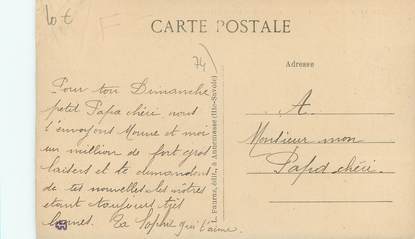 10 €
F
74)
CARTE POSTALE
Adresse
Pour ton Dimanche
petit Papa chéri nous
t'envoyons Moune et moi
un million de fort gros
baisers et te demandons
de tes nouvelles les nôtres
étant toujours très
bonnes. Ta Sophie qui t'aime.
L. Fauraz, édit., à Annemasse (Hte-Savoie)
A
Monsieur mon
Papa chéri.